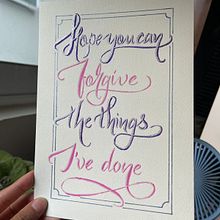 Hope you can
forgive
the things
I've done